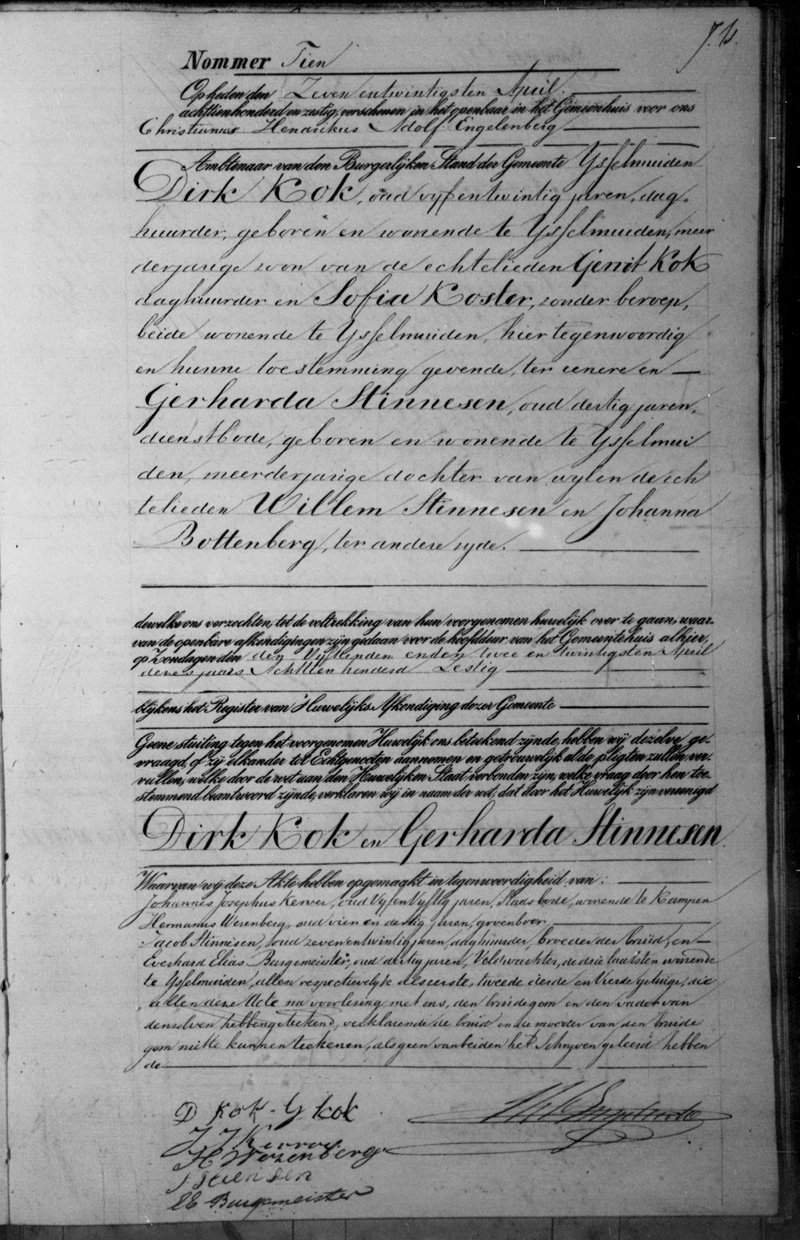 Nommer Tien
Op heden den Zeven en twintigsten April
achttienhonderd en zestig, verschenen in het openbaar in het Gemeentehuis voor ons
Christianus Hendrikus Adolf Engelenberg
Ambtenaar van den Burgerlijken Stand der Gemeente Ysselmuiden
Dirk Kok, oud vyf en twintig jaren, dag-
huurder, geboren en wonende te Ysselmuiden, meer
derjarige zoon van de echtelieden Gerrit Kok
daghuurder en Sofia Koster, zonder beroep,
beide wonende te Ysselmuiden, hier tegenwoordig
en hunne toestemming gevende, ter eenere en
Gerharda Stinnesen, oud dertig jaren,
dienstbode, geboren en wonende te Ysselmui
den, meerderjarige dochter van wylen de ech
telieden Willem Stinnesen en Johanna
Bottenberg, ter andere zyde.
dewelke ons verzochten, tot de voltrekking van hun voorgenomen huwelijk over te gaan, waar-
van de openbare afkondigingen zijn gedaan voor de hoofddeur van het Gemeentehuis alhier,
op Zondagen den den Vyftienden en den twee en twintigsten April
dezes jaars Achttien honderd Zestig
blijkens het Register van 's Huwelijks Afkondiging dezer Gemeente
Geene stuiting tegen het voorgenomen Huwelijk ons beteekend zijnde, hebben wij dezelve ge-
vraagd, of zij elkander tot Echtgenooten aannemen en getrouwelijk al de pligten zullen ver-
vullen, welke door de wet aan den Huwelijken Staat verbonden zijn, welke vraag door hen toe-
stemmend beantwoord zijnde, verklaren wij in naam der wet, dat door het Huwelijk zijn vereenigd
Dirk Kok en Gerharda Stinnesen.
Waarvan wij deze Akte hebben opgemaakt in tegenwoordigheid van:
Johannes Josephus Kerver, oud Vyf en Vyftig jaren, Stads bode, wonende te Kampen
Hermanus Werenberg, oud vier en dertig jaren,
Jacob Stinnesen, oud zeven en twintig jaren, daghuurder, broeder der bruid, en
Everhard Elias Burgemeister, oud dertig jaren, Veldwachter, de drie laatsten wonende
te Ysselmuiden, allen respectevelyk als eerste, tweede derde en vierde getuige, die
allen deze Acte na voorlezing met ons, den bruidegom en den vader van
denzelven hebben geteekend, verklarende de bruid en de moeder van den bruide
gom niet te kunnen teekenen, als geen van beiden het Schryven geleerd hebben
de
D Kok - G Kok
J J Kerver
H Werenberg
J Stinensen
EE Burgemeister